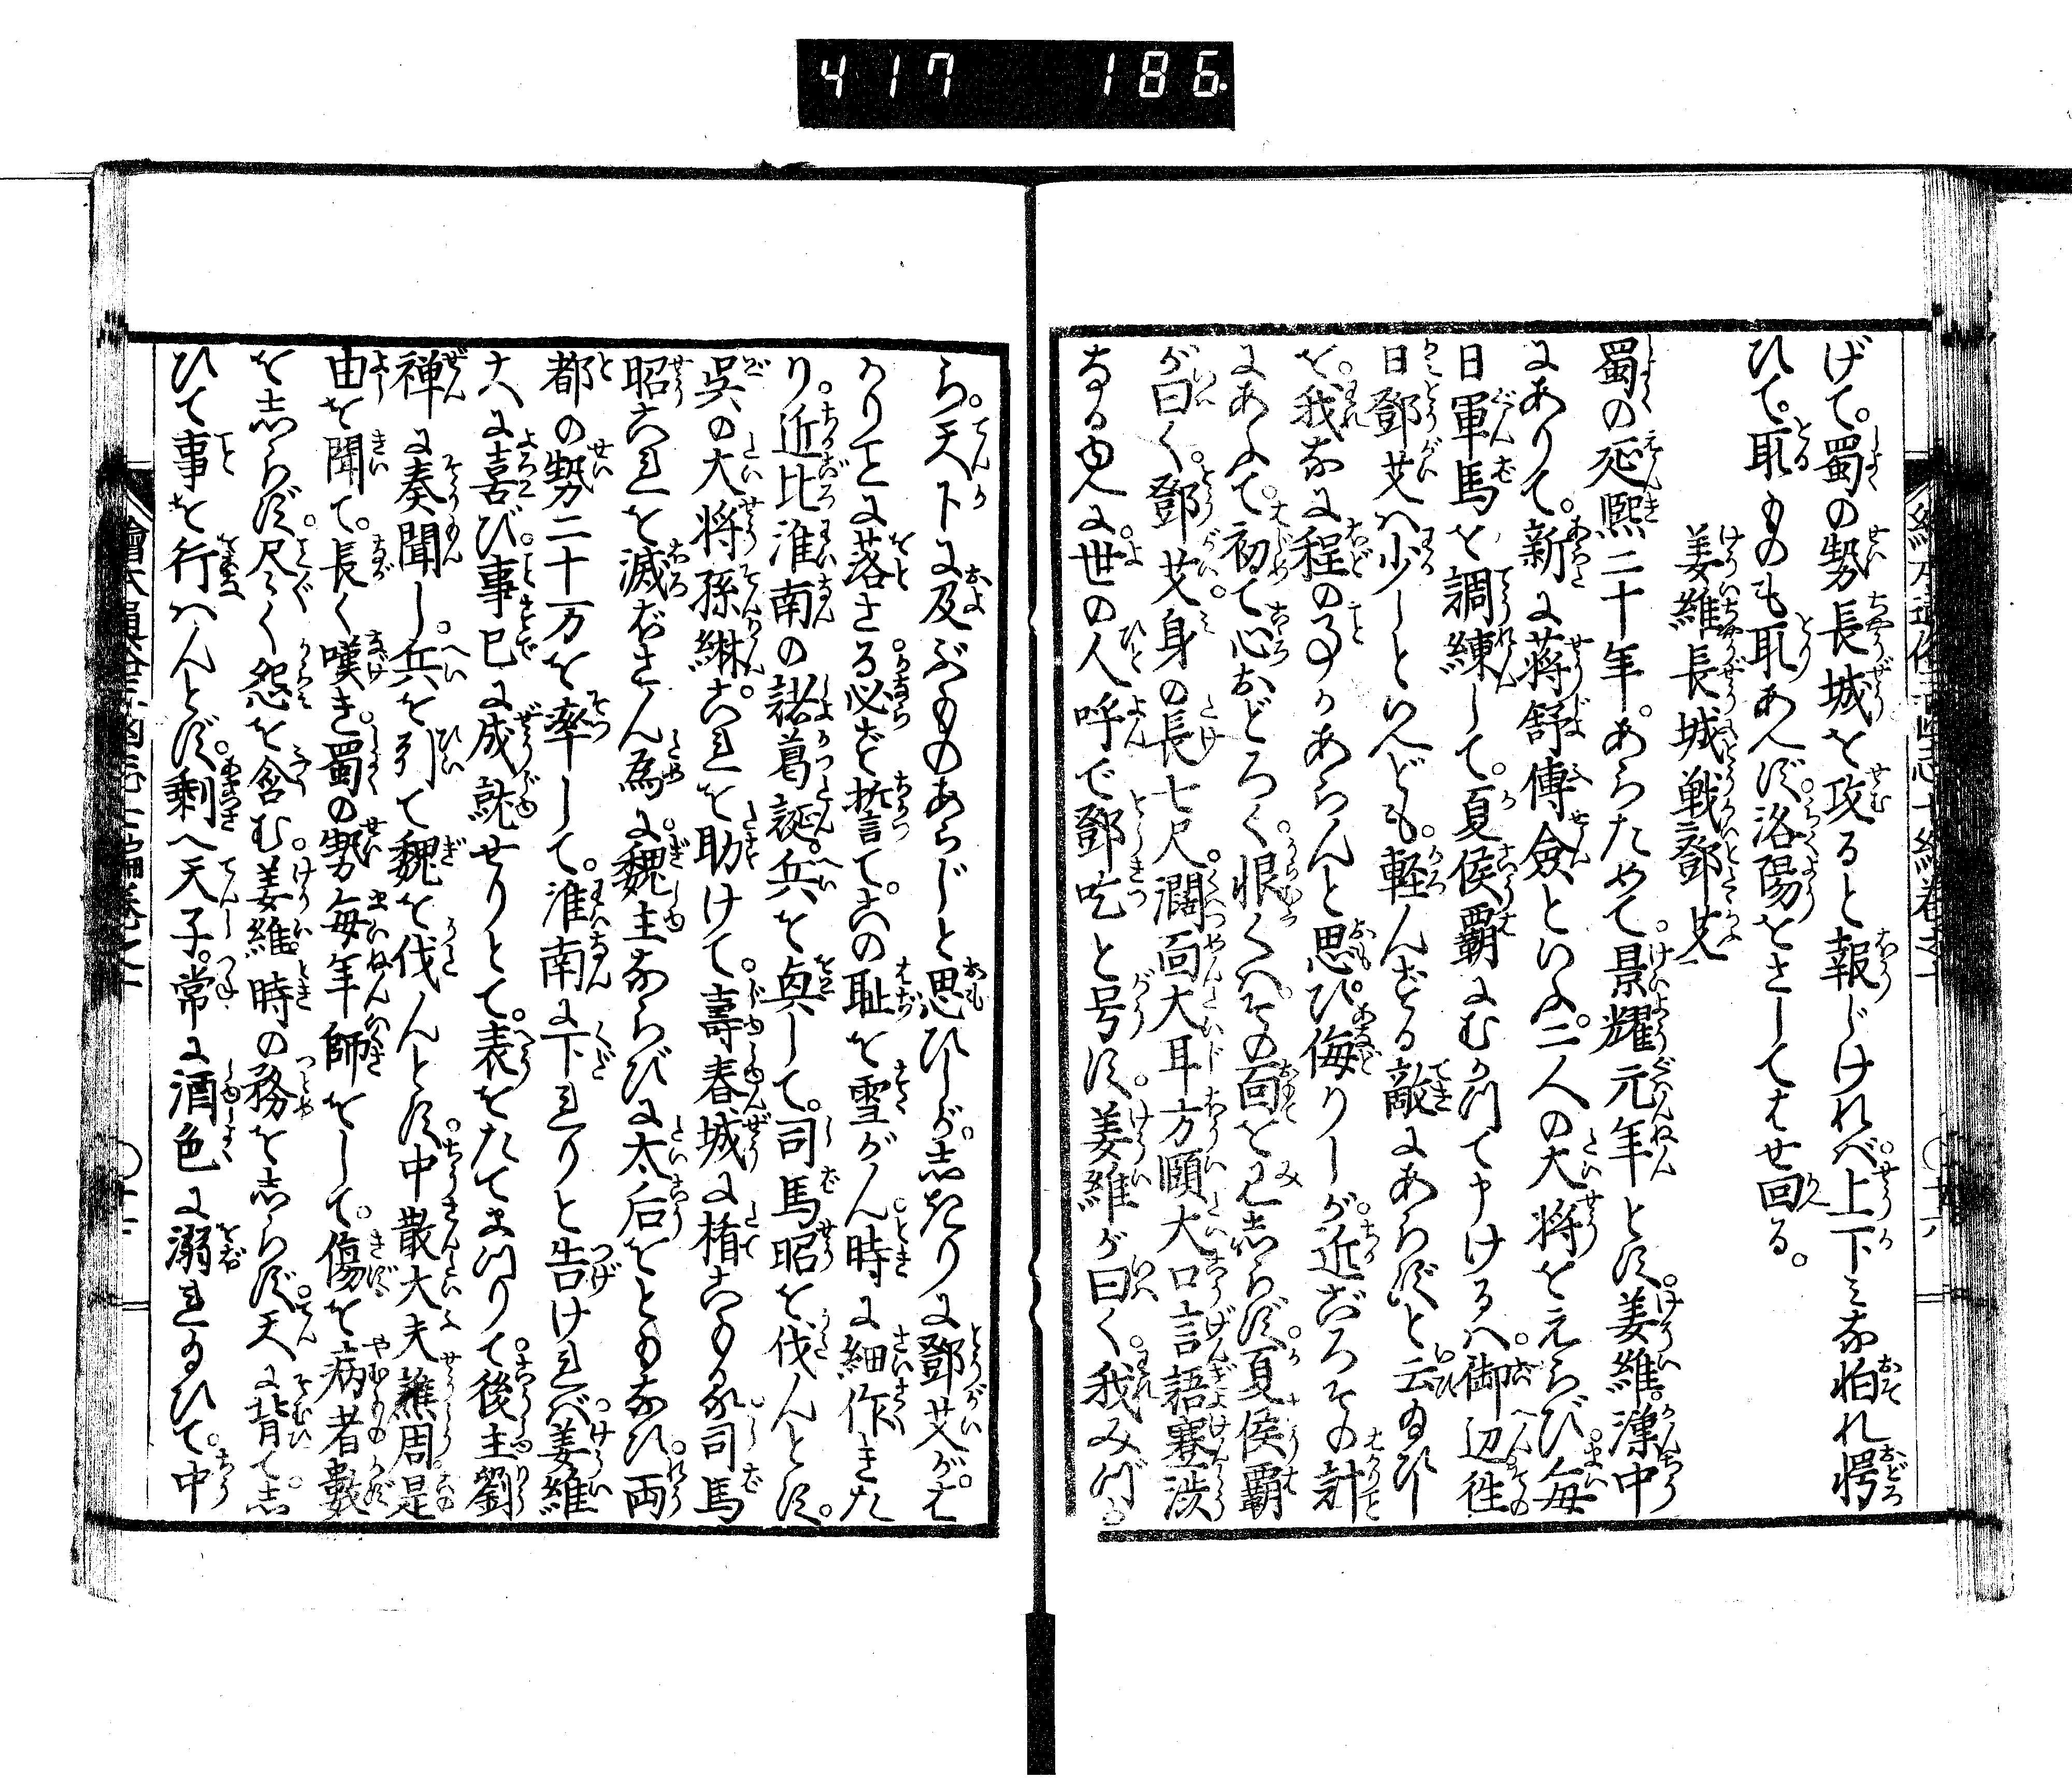 417 186
げて。蜀の勢長城を攻ると報じけれバ。上下ミな怕れ愕
ひて。取ものも取あへず。洛陽をさしてはせ回る。
姜維長城戦鄧艾
蜀の延熙二十年。あらためて。景耀元年とす。姜維。漢中
にありて。新に蒋舒傅僉といふ。二人の大将をえらび。毎
日軍馬を調練して。夏侯覇にむかつて申けるハ。御辺徃
日鄧艾ハ少しといへども。軽んずる敵にあらずと云給ひし
を。我なに程の事かあらんと思ひ。侮りしが。近ごろその計
にあふて。初て心おどろく。恨くハ。その面を見しらず。夏侯覇
が曰く。鄧艾。身の長七尺。濶面大耳方頤大口言語蹇渋
なるゆへに。世の人呼で鄧吃と号す。姜維が曰く。我みづか
ら。天下に及ぶものあらじと思ひしが。志きりに鄧艾が。は
かりことに落さる。必ず誓て。此の恥を雪がん時に細作きた
り。近比淮南の諸葛誕。兵を起して。司馬昭を伐んとす。
呉の大将孫綝。これを助けて。壽春城に楯こもる。司馬
昭これを滅ぼさん為に。魏主ならびに太后をともなひ。両
都の勢二十万を率して。淮南に下れりと告けれバ。姜維
大に喜び。事已に成就せりとて。表をたてまつりて。後主劉
禅に奏聞し。兵を引て魏を伐んとす。中散大夫譙周是
由を聞て。長く嘆き。蜀の勢毎年師をして。傷を病者数
を志らず。尽く怨を含む。姜維。時の務を志らず。天に背て。志
ひて事を行ハんとす。剰へ天子。常に酒色に溺れ給ひて。中